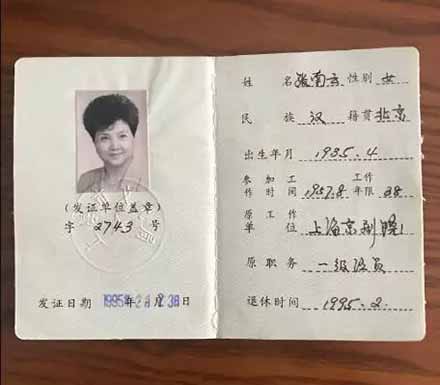 (发证单位盖章)
字 2743 号
发证日期 1995年2月23日
姓名 张南云 性别 女
民族 汉 籍贯 北京
出生年月 1935.4
参加工作时间 1957.8 工作年限 38
原工作单位 上海京剧院
原职务 一级演员
退休时间 1995.2